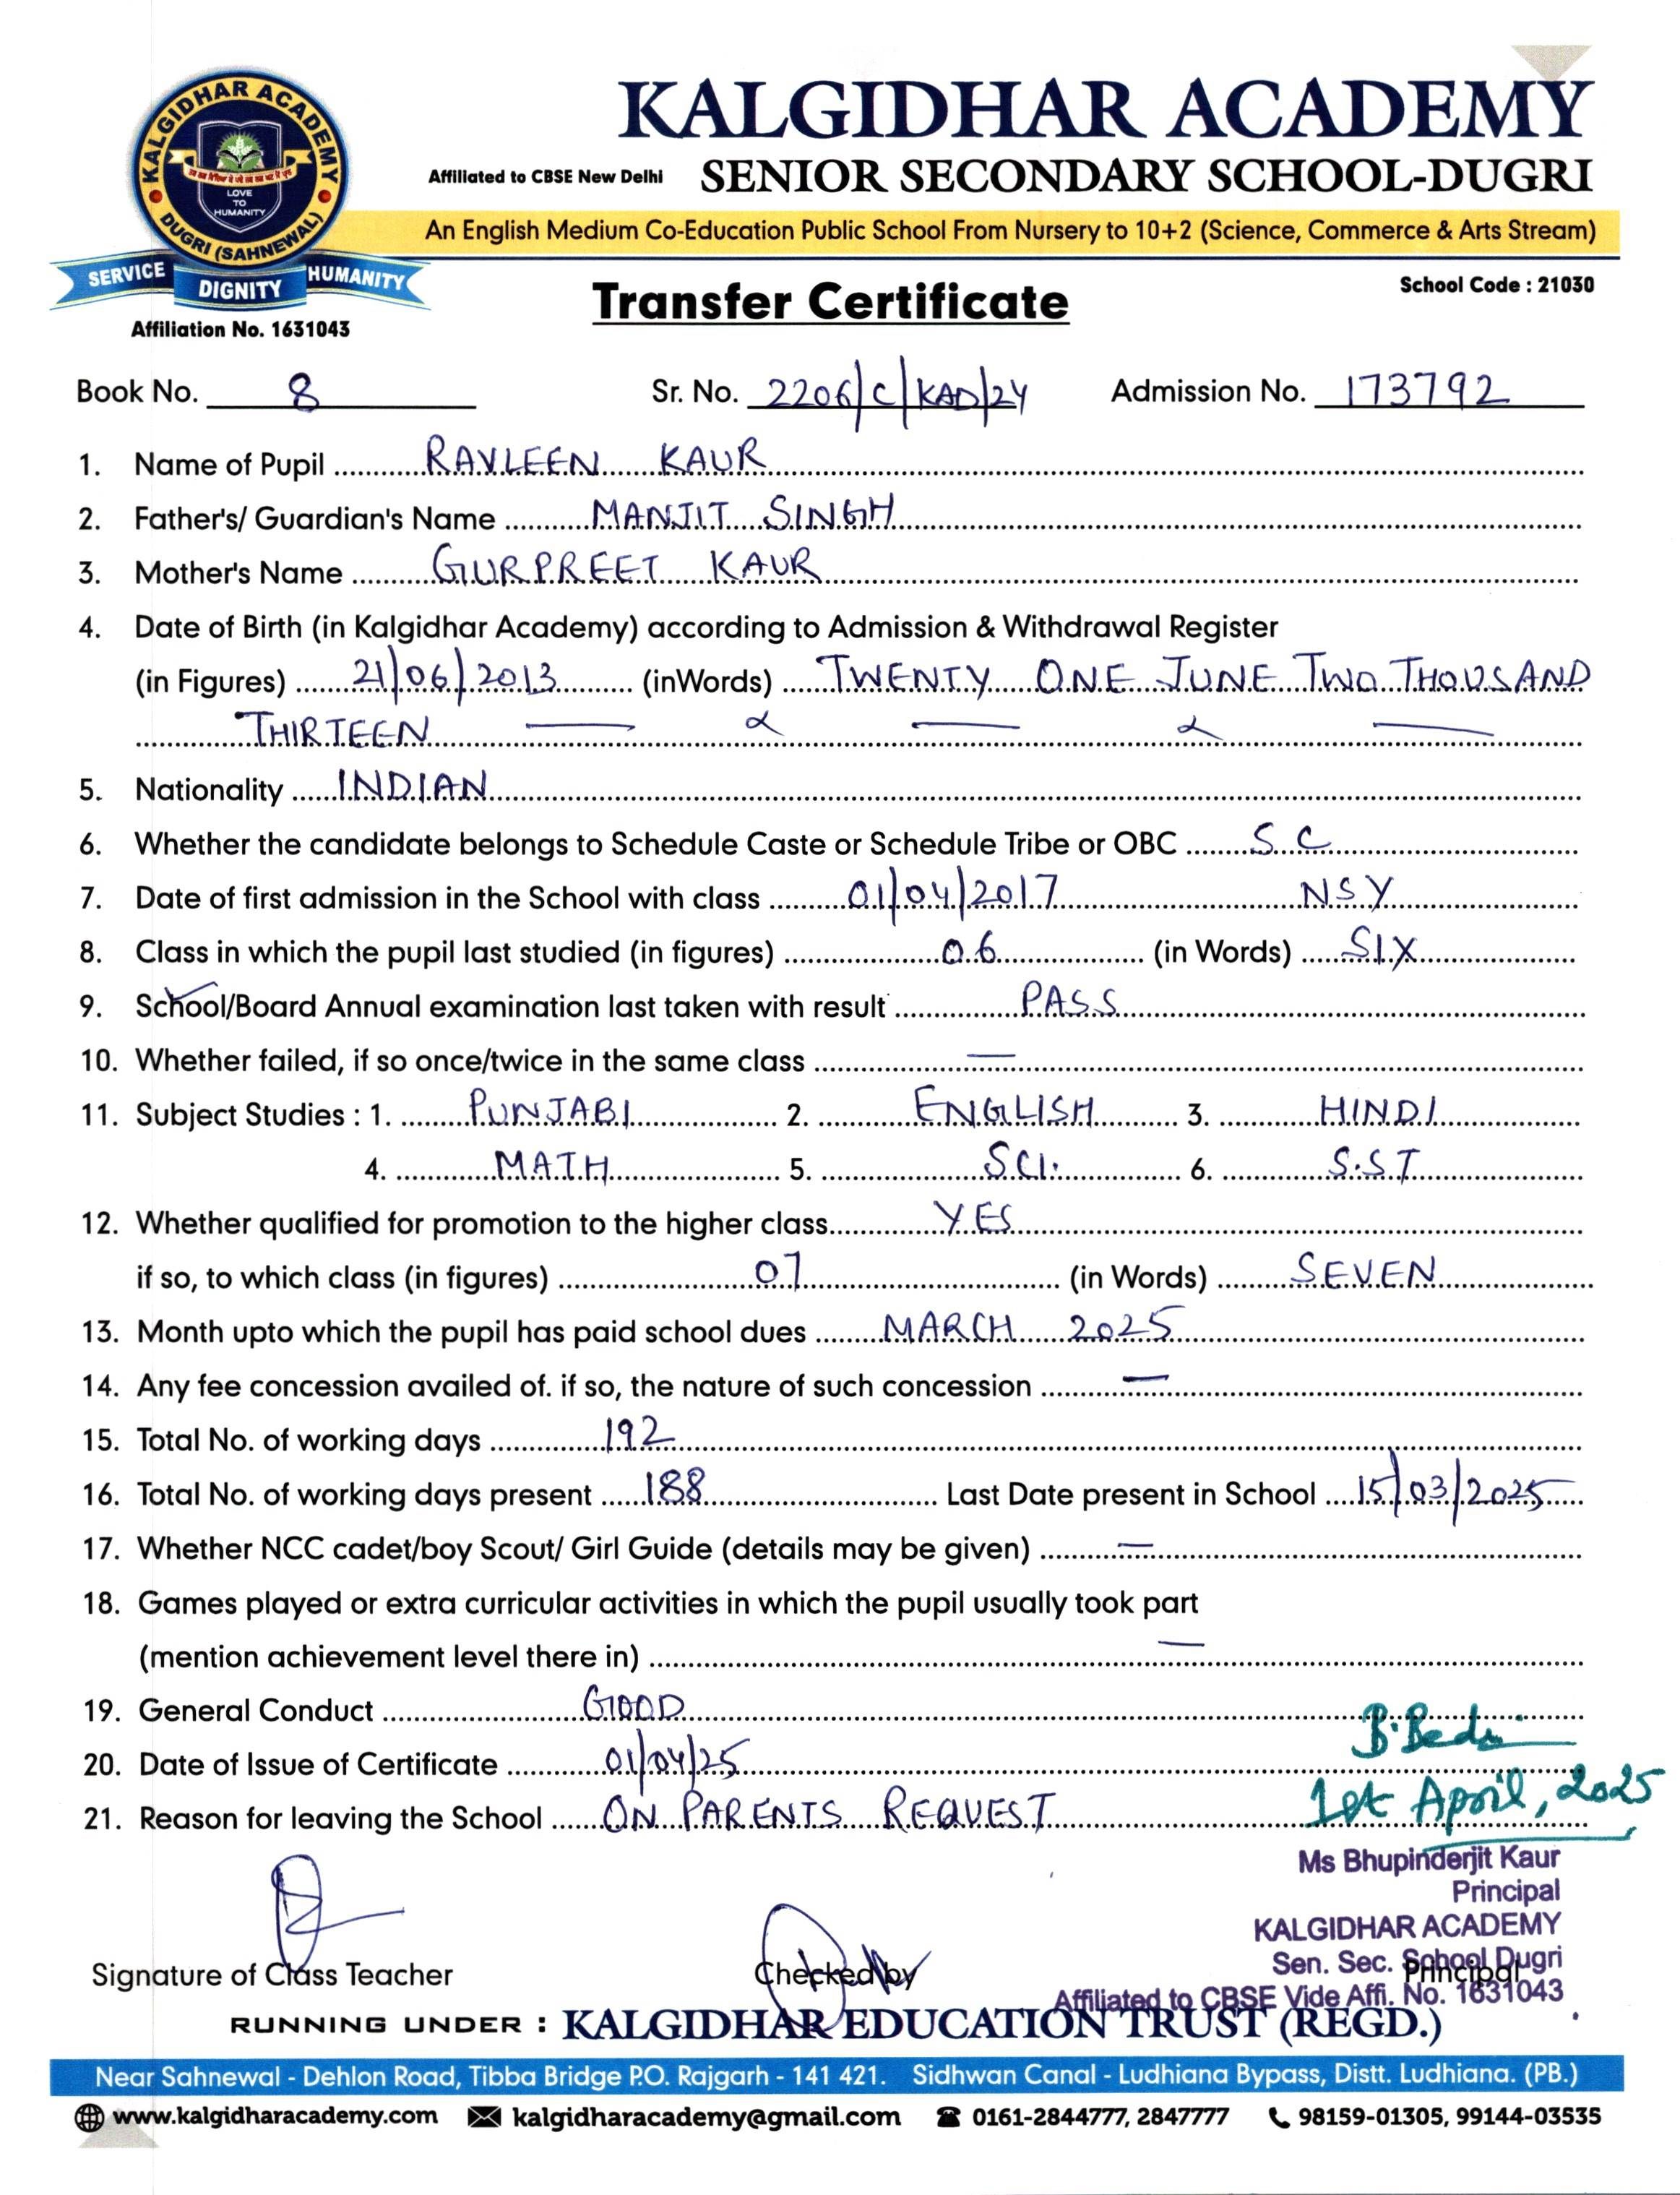 KALGIDHAR ACADEMY
DUGRI (SAHNEWAL)
LOVE
TO
HUMANITY
SERVICE DIGNITY HUMANITY
Affiliation No. 1631043
KALGIDHAR ACADEMY
Affiliated to CBSE New Delhi SENIOR SECONDARY SCHOOL-DUGRI
An English Medium Co-Education Public School From Nursery to 10+2 (Science, Commerce & Arts Stream)
School Code : 21030
Transfer Certificate
Book No. 8 Sr. No. 2206/C/KAD/24 Admission No. 173792
1. Name of Pupil RAVLEEN KAUR
2. Father's/ Guardian's Name MANJIT SINGH
3. Mother's Name GURPREET KAUR
4. Date of Birth (in Kalgidhar Academy) according to Admission & Withdrawal Register
(in Figures) 21/06/2013 (inWords) TWENTY ONE JUNE TWO THOUSAND
THIRTEEN
5. Nationality INDIAN
6. Whether the candidate belongs to Schedule Caste or Schedule Tribe or OBC SC
7. Date of first admission in the School with class 01/04/2017 NSY
8. Class in which the pupil last studied (in figures) 06 (in Words) SIX
9. School/Board Annual examination last taken with result PASS
10. Whether failed, if so once/twice in the same class —
11. Subject Studies : 1. PUNJABI 2. ENGLISH 3. HINDI
4. MATH 5. SCI. 6. S.ST
12. Whether qualified for promotion to the higher class YES
if so, to which class (in figures) 07 (in Words) SEVEN
13. Month upto which the pupil has paid school dues MARCH 2025
14. Any fee concession availed of. if so, the nature of such concession —
15. Total No. of working days 192
16. Total No. of working days present 188 Last Date present in School 15/03/2025
17. Whether NCC cadet/boy Scout/ Girl Guide (details may be given) —
18. Games played or extra curricular activities in which the pupil usually took part
(mention achievement level there in) —
19. General Conduct GOOD
B.Bedi
20. Date of Issue of Certificate 01/04/25
1st April, 2025
21. Reason for leaving the School ON PARENTS REQUEST
Ms Bhupinderjit Kaur
Principal
KALGIDHAR ACADEMY
Sen. Sec. School Dugri
Signature of Class Teacher Checked by Principal
Affiliated to CBSE Vide Affi. No. 1631043
RUNNING UNDER : KALGIDHAR EDUCATION TRUST (REGD.)
Near Sahnewal - Dehlon Road, Tibba Bridge P.O. Rajgarh - 141 421. Sidhwan Canal - Ludhiana Bypass, Distt. Ludhiana. (PB.)
www.kalgidharacademy.com kalgidharacademy@gmail.com 0161-2844777, 2847777 98159-01305, 99144-03535